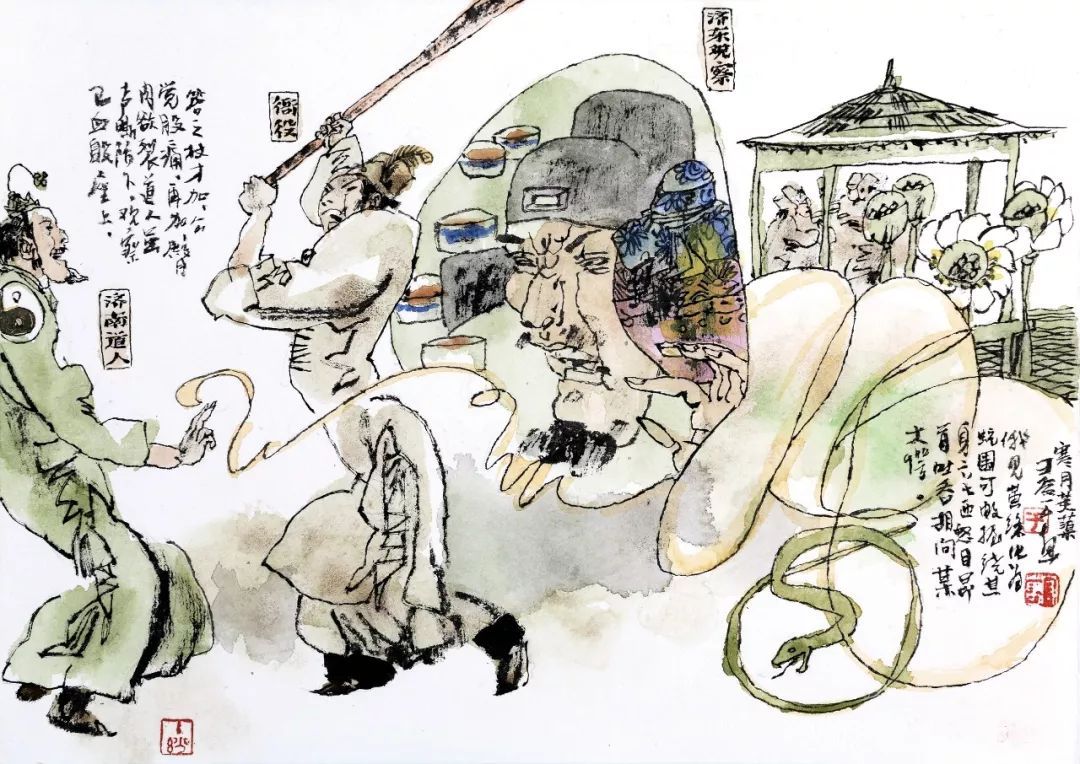 济东观察
衙役
笞之杖才加、公
觉股痛，再加、臀
肉欲裂道人虽
声嘶阶下、观察
已血殷座上。
济南道人
寒月芙蕖
俄见黄绦化为
蛇围可数握绕其
身六七匝怒目昂
首吐舌相向某
大愕。